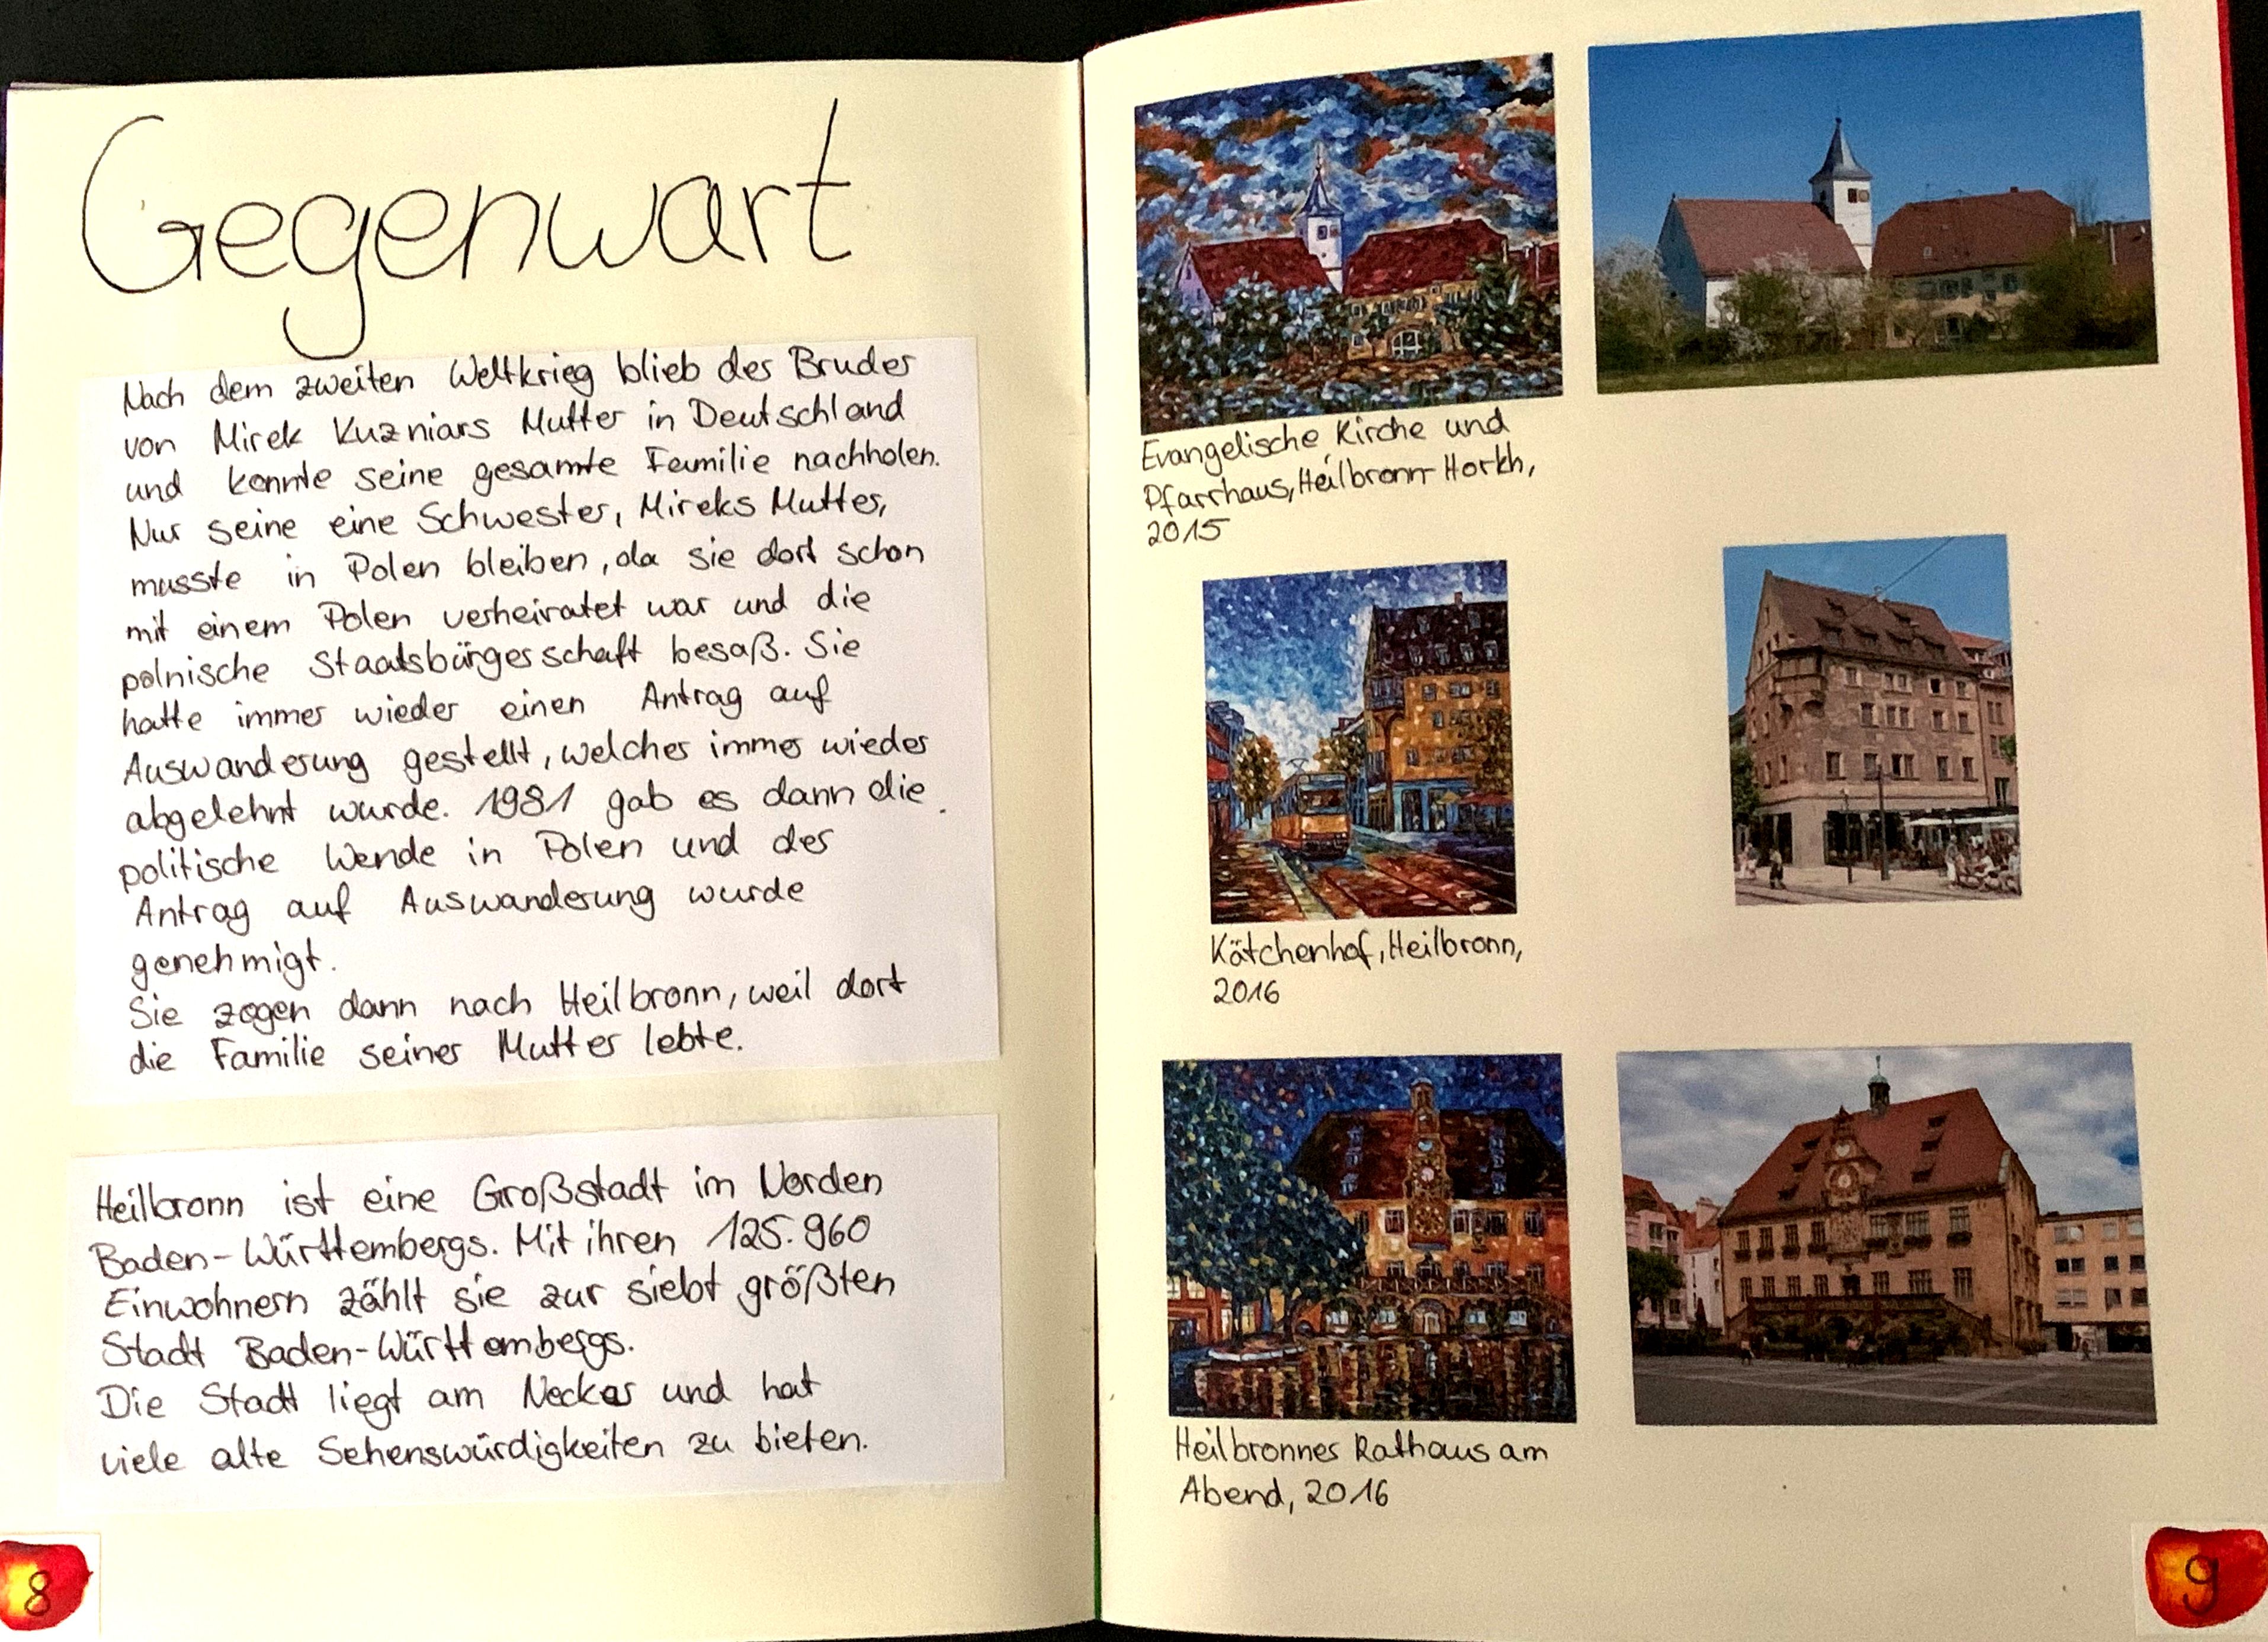 Gegenwart
Nach dem zweiten Weltkrieg blieb der Bruder
von Mirek Kuzniars Mutter in Deutschland
und konnte seine gesamte Familie nachholen.
Nur seine eine Schwester, Mireks Mutter,
musste in Polen bleiben, da sie dort schon
mit einem Polen verheiratet war und die
polnische Staatsbürgerschaft besaß. Sie
hatte immer wieder einen Antrag auf
Auswanderung gestellt, welcher immer wieder
abgelehnt wurde. 1981 gab es dann die
politische Wende in Polen und der
Antrag auf Auswanderung wurde
genehmigt.
Sie zogen dann nach Heilbronn, weil dort
die Familie seiner Mutter lebte.
Heilbronn ist eine Großstadt im Norden
Baden-Württembergs. Mit ihren 125.960
Einwohnern zählt sie zur siebt größten
Stadt Baden-Württembergs.
Die Stadt liegt am Neckar und hat
viele alte Sehenswürdigkeiten zu bieten.
8
Evangelische Kirche und
Pfarrhaus, Heilbronn Horkh,
2015
Kätchenhof, Heilbronn,
2016
Heilbronner Rathaus am
Abend, 2016
9